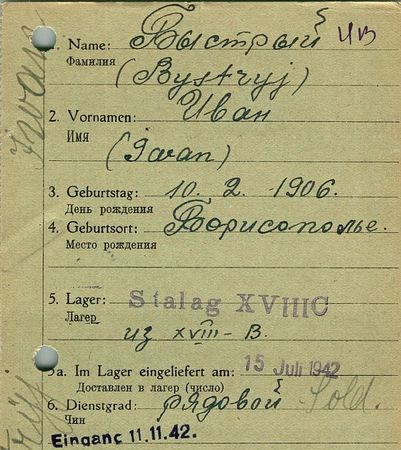 1. Name: Быстрый ИВ
Фамилия (Bystryj)
2. Vornamen: Иван
Имя (Iwan)
3. Geburtstag: 10. 2. 1906.
День рождения
4. Geburtsort: Борисополье.
Место рождения
5. Lager: Stalag XVIIIC
Лагер из XVIII-В.
5a. Im Lager eingeliefert am: 15 Juli 1942
Доставлен в лагер (число)
6. Dienstgrad: рядовой Sold.
Чин
Eingang 11.11.42.
Iwan